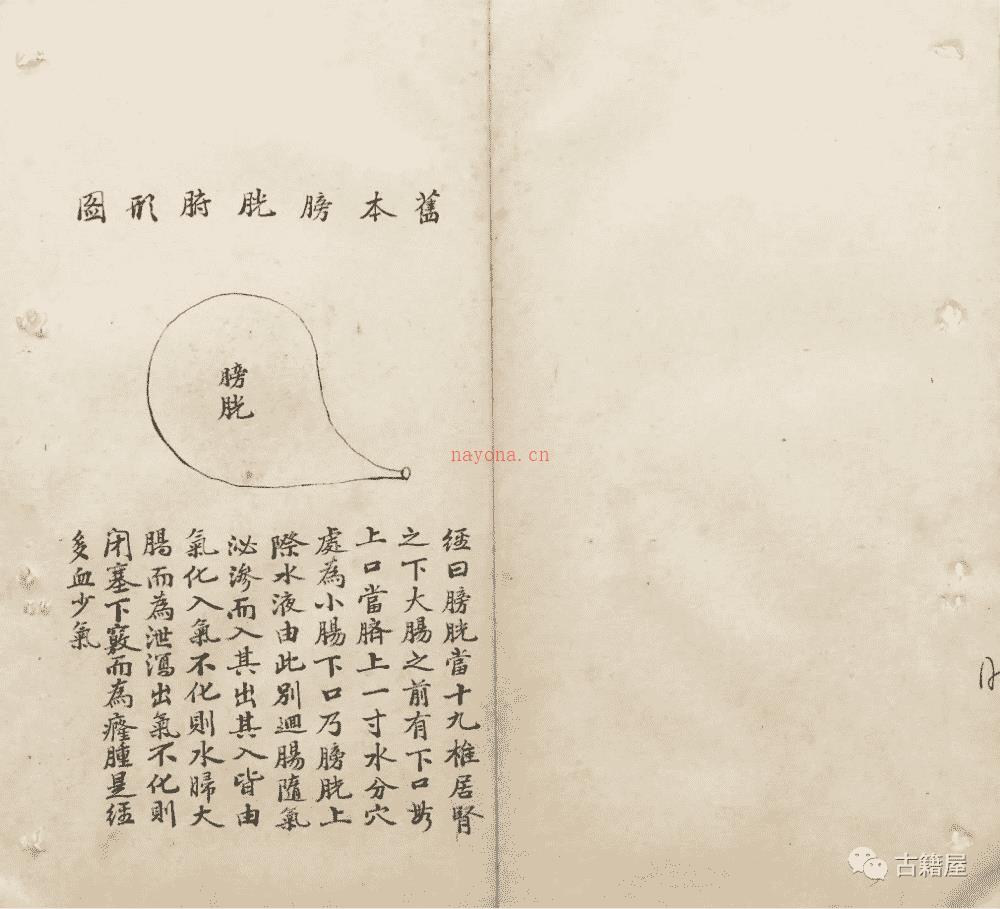 舊本膀胱腑形圖
膀
胱
經曰膀胱當十九椎居腎
之下大腸之前有下口無
上口當臍上一寸水分穴
處為小腸下口乃膀胱上
際水液由此別迴腸隨氣
泌滲而入其出其入皆由
氣化入氣不化則水歸大
腸而為泄瀉出氣不化則
閉塞下竅而為癃腫是經
多血少氣
nayona.cn
古籍屋